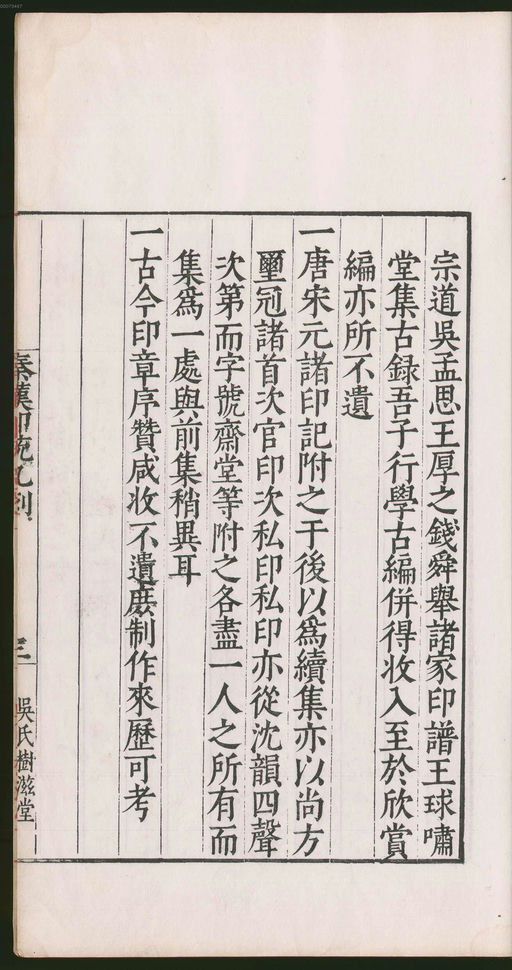 宗道吳孟思王厚之錢舜舉諸家印譜王球嘯
堂集古録吾子行學古編併得收入至於欣賞
編亦所不遺
一唐宋元諸印記附之于後以爲續集亦以尚方
璽冠諸首次官印次私印私印亦從沈韻四聲
次第而字號齋堂等附之各盡一人之所有而
集爲一處與前集稍異耳
一古今印章序贊咸收不遺庻制作來歷可考
秦漢印統凡例
三
吳氏樹滋堂
00073487